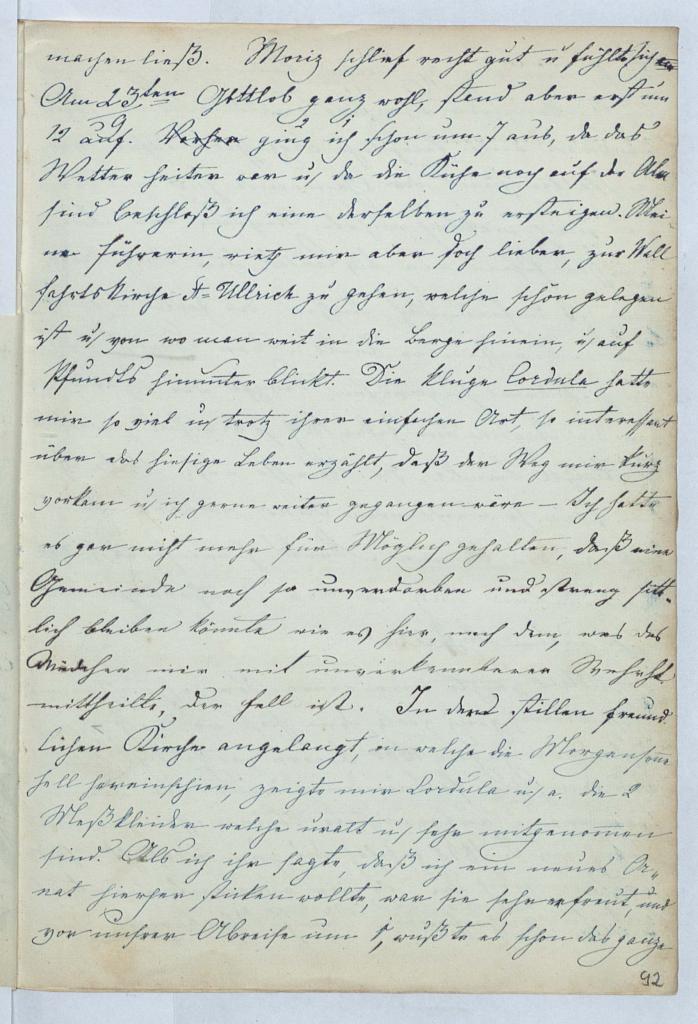 machen ließ. Moriz schlief recht gut u fühlte sich
Am 23ten Gottlob ganz wohl, stand aber erst um
12 auf. Vorher ging ich schon um 7 aus, da das
Wetter heiter war u/ da die Kühe noch auf der Alm
sind beschloß ich eine derselben zu ersteigen. Mei-
ne Führerin rieth mir aber doch lieber, zur Wall
fahrtskirche St= Ullrich zu gehen, welche schön gelegen
ist u/ von wo man weit in die Berge hinein, u/ auf
Pfundts hinunter blickt. Die kluge Cordula hatte
mir so viel u/ trotz ihrer einfachen Art, so interessant
über das hiesige Leben erzählt, daß der Weg mir kurz
vorkam u/ ich gerne weiter gegangen wäre – Ich hatte
es gar nicht mehr für Möglich gehalten, daß eine
Gemeinde noch so unverdorben und streng sitt-
lich bleiben könnte wie es hier, nach dem, was das
Mädchen mir mit unverkennbarer Wahrht
mittheilte, der Fall ist. In der stillen freund
lichen Kirche angelangt, in welche die Morgensonne
hell hereinschien, zeigte mir Cordula u/ a. die 2
Meßkleider welche uralt u/ sehr mitgenommen
sind. Als ich ihr sagte, daß ich ein neues Or-
nat hierher sticken wollte, war sie sehr erfreut, und
vor unsrer Abreise um 1, wußte es schon das ganze
92